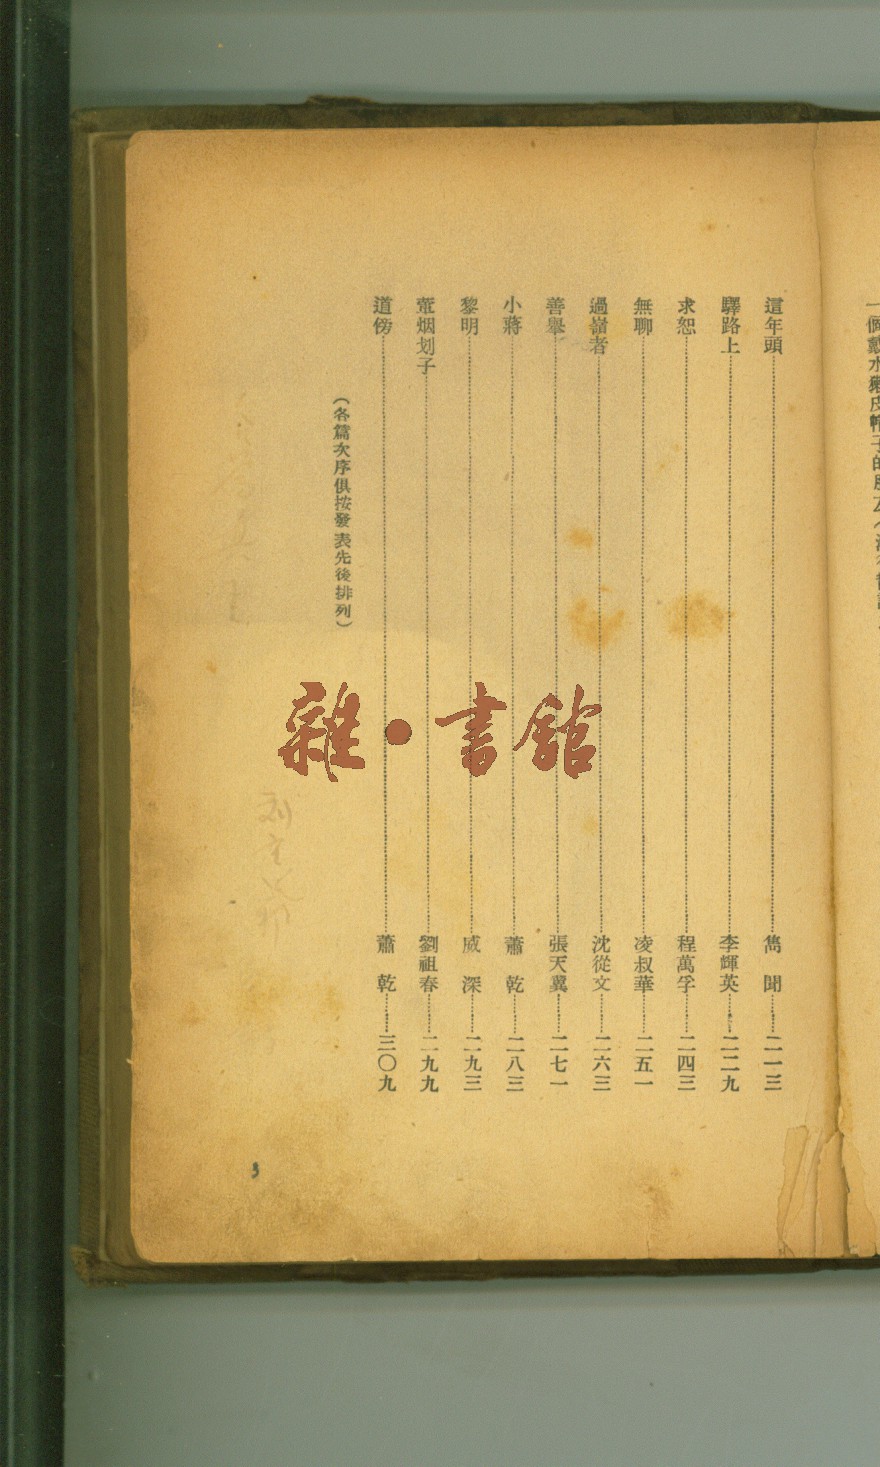 這年頭……雋聞……二一三
驛路上……李輝英……二二九
求恕……程萬孚……二四三
無聊……凌叔華……二五一
過嶺者……沈從文……二六三
善舉……張天翼……二七一
小蔣……蕭乾……二八三
黎明……威深……二九三
葷烟划子……劉祖春……二九九
道傍……蕭乾……三〇九
(各篇次序俱按發表先後排列)
雜・書館
3